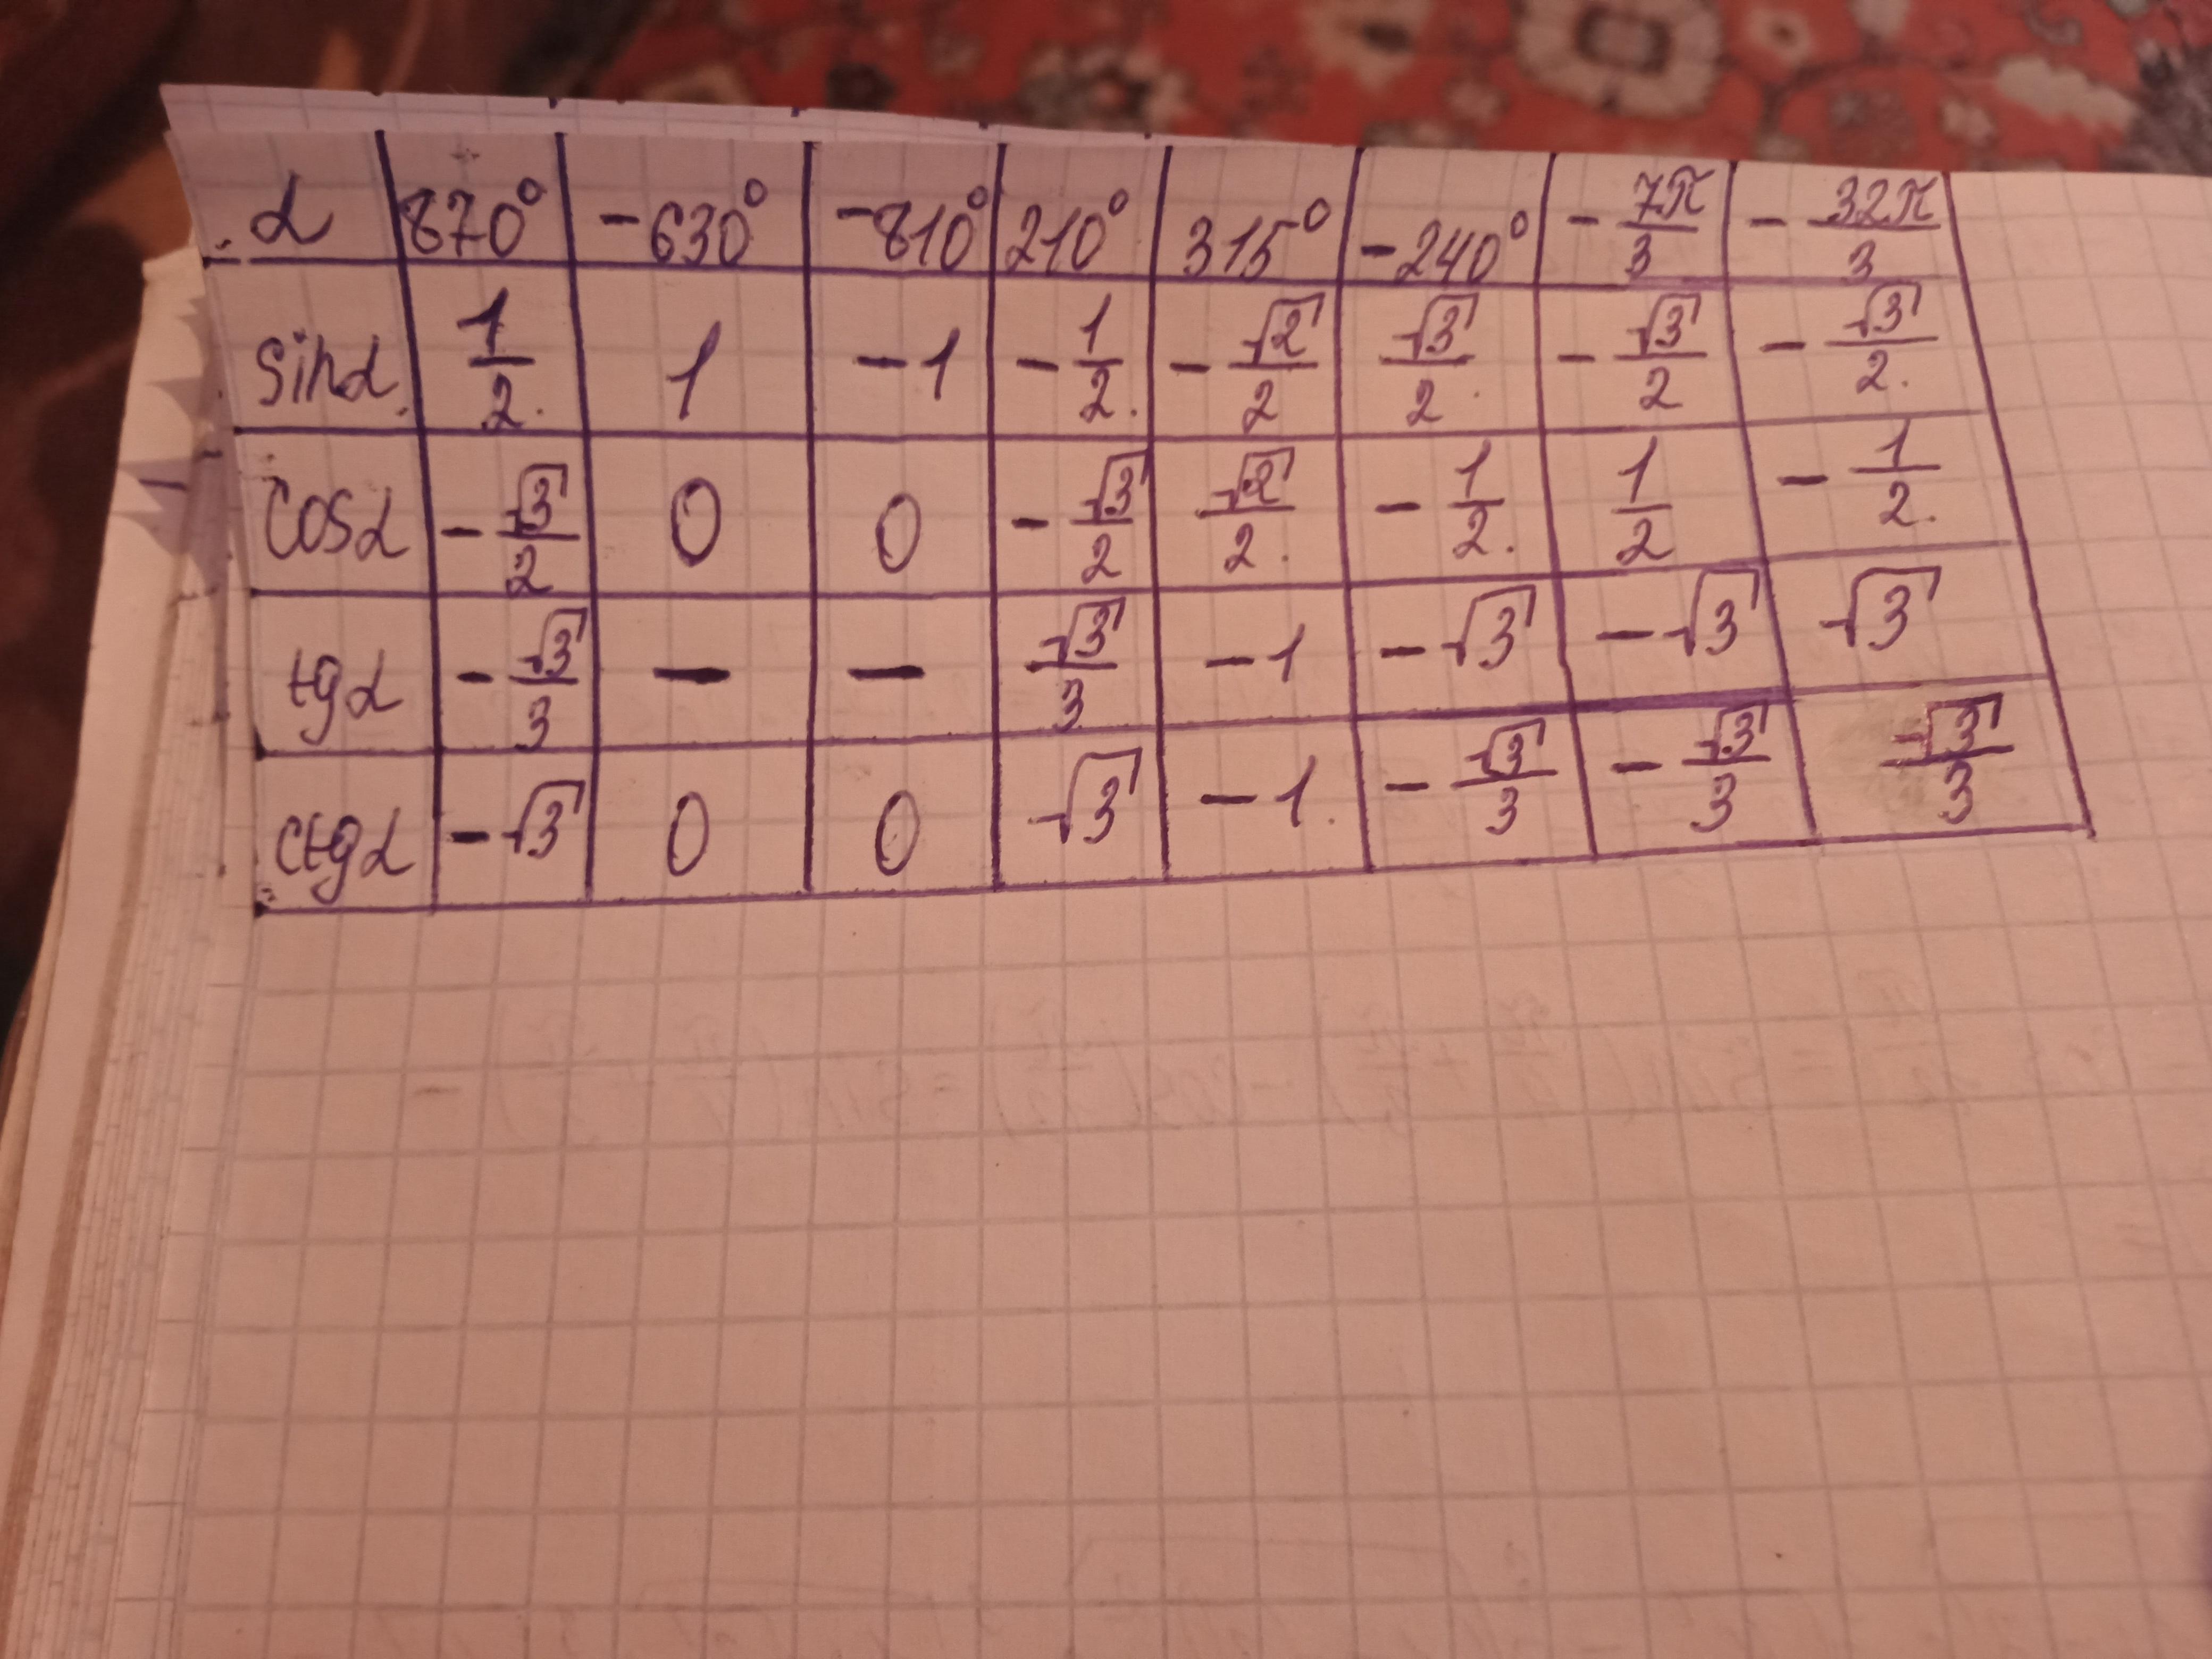 α 870° -630° -810° 210° 315° -240° -7π/3 -32π/3
sinα 1/2 1 -1 -1/2 -√2/2 √3/2 -√3/2 -√3/2
cosα -√3/2 0 0 -√3/2 √2/2 -1/2 1/2 -1/2
tgα -√3/3 — — √3/3 -1 -√3 -√3 √3
ctgα -√3 0 0 √3 -1 -√3/3 -√3/3 √3/3